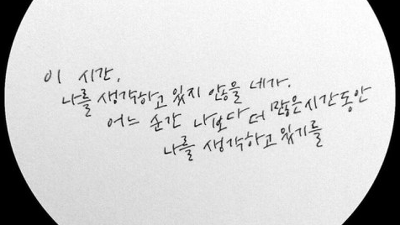 이 시간,
나를 생각하고 있지 않을 네가.
어느 순간 나보다 더 많은 시간 동안
나를 생각하고 있기를